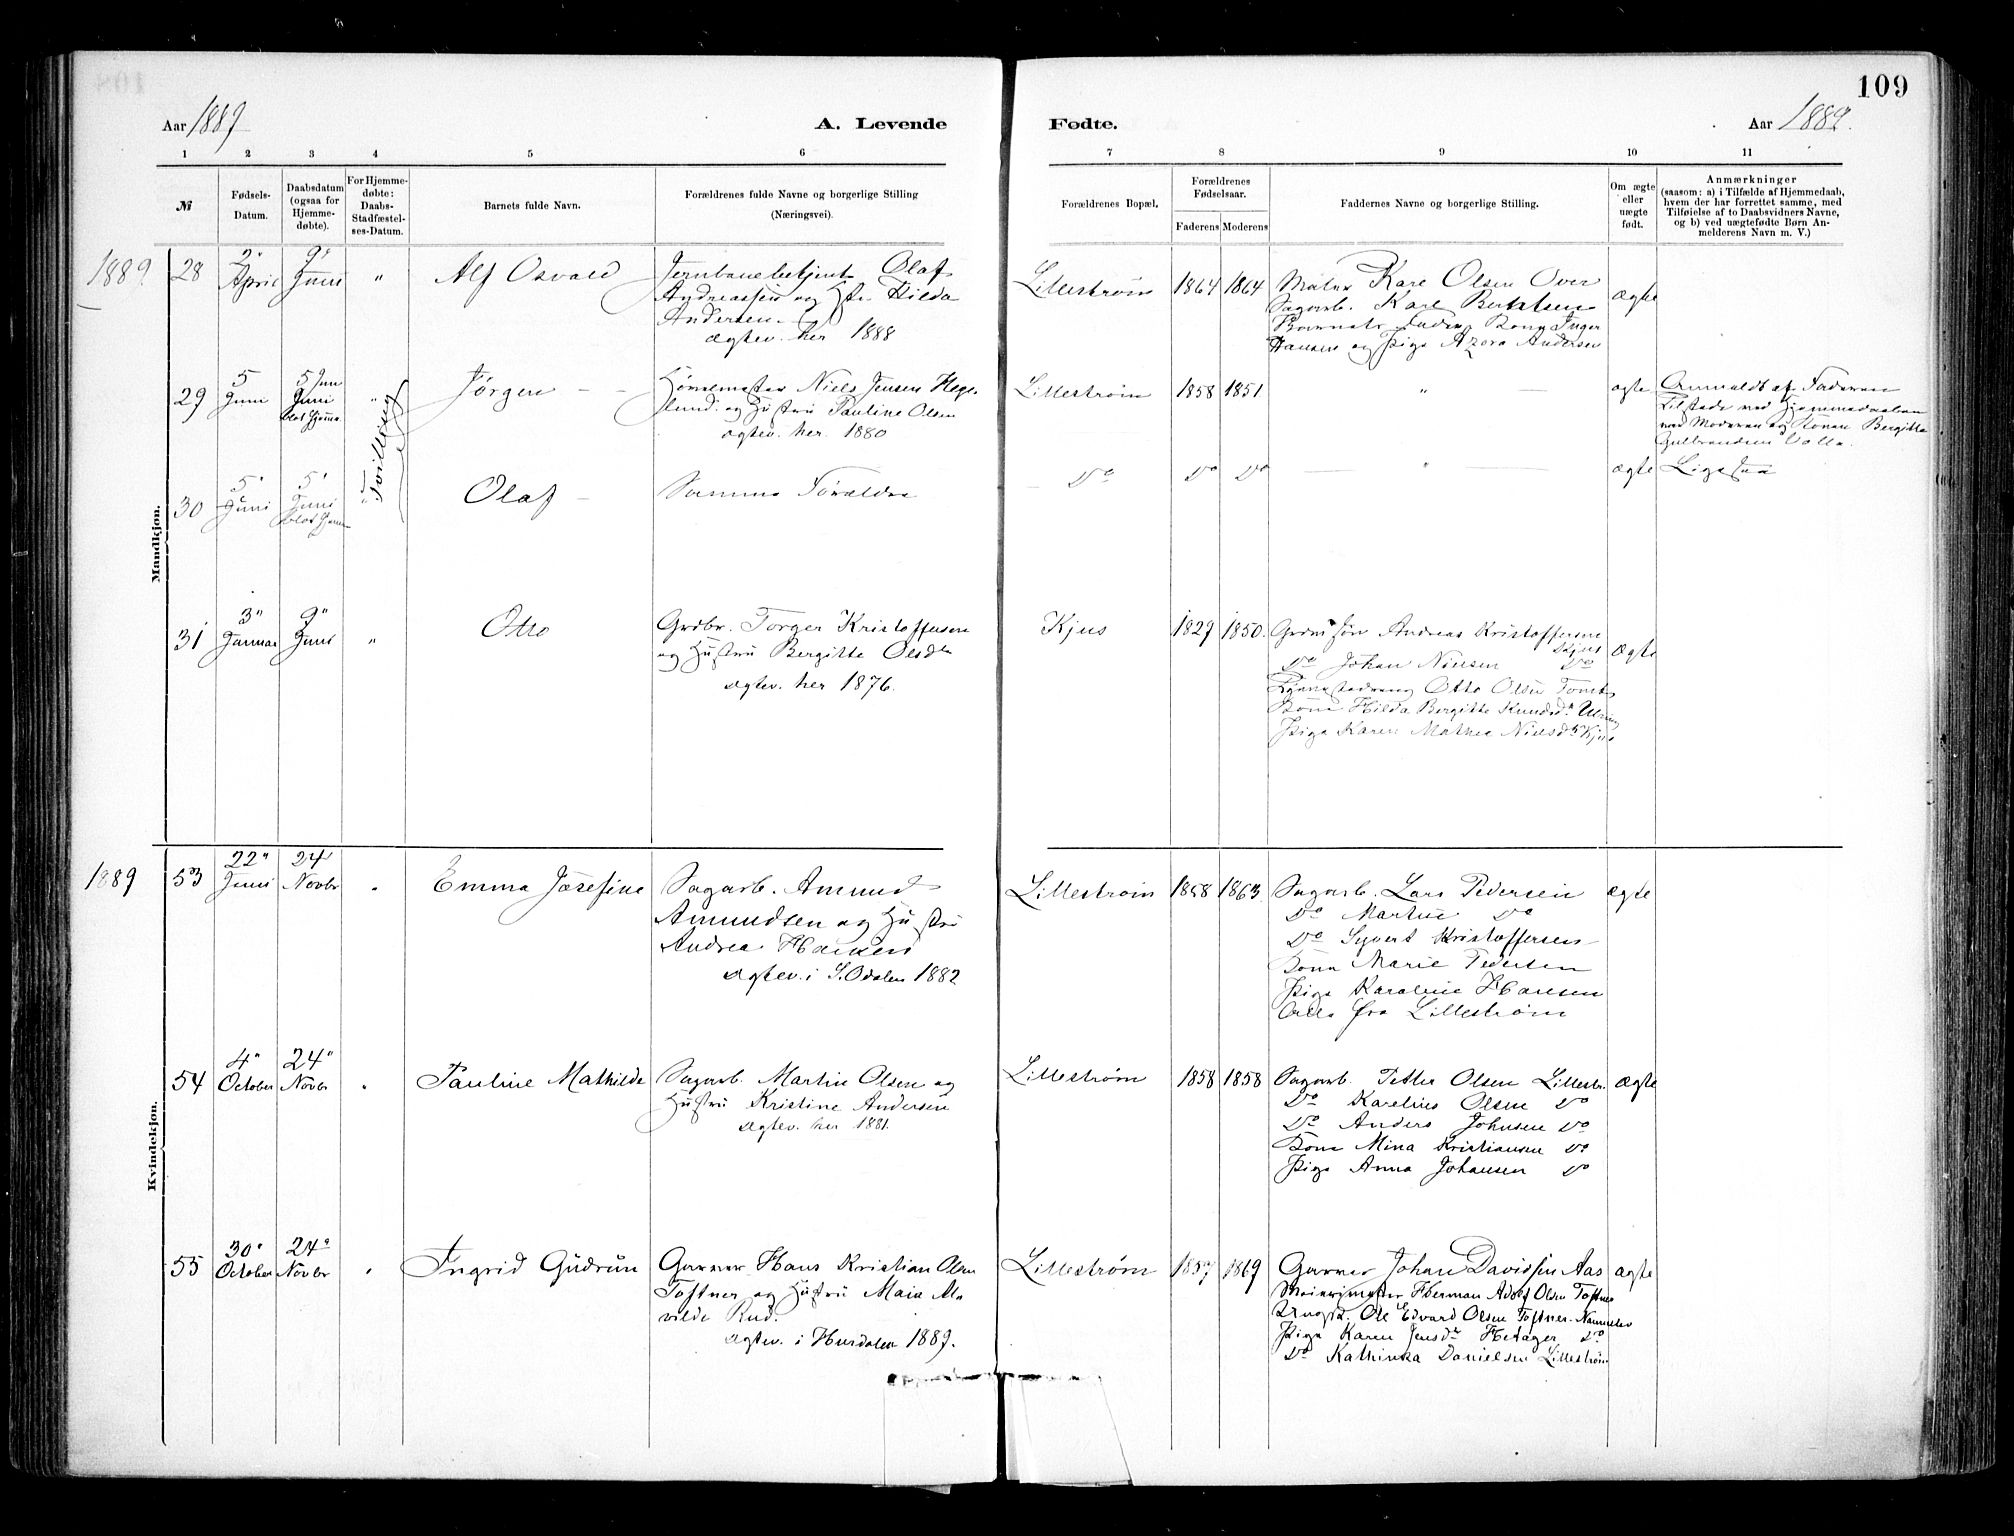 109
Aar 1889
A. Levende
Fødte.
Aar 1889.
1 2 3 4 5 6 7 8 9 10 11
№
Fødsels-
Datum.
Daabsdatum
(ogsaa for
Hjemme-
døbte).
For Hjemme-
døbte:
Daabs-
Stadfæstel-
ses-Datum.
Barnets fulde Navn.
Forældrenes fulde Navne og borgerlige Stilling
(Næringsvei).
Forældrenes Bopæl.
Forældrenes
Fødselsaar.
Faderens Moderens
Faddernes Navne og borgerlige Stilling.
Om ægte
eller
uægte
født.
Anmærkninger
(saasom: a) i Tilfælde af Hjemmedaab,
hvem der har forrettet samme, med
Tilføielse af to Daabsvidners Navne,
og b) ved uægtefødte Børn An-
melderens Navn m. V.)
Mandkjøn.
1889
28
2"
April
9"
Juni
"
Alf Osvald
Jernbanebetjent Olaf
Andreassen og Hst. Hilda
Andersen.
Ægtev. her 1888
Lillestrøm
1864
1864
Maler Karl Olsen Over
Sagarb. Karl Berntsen
Barnets Fader Kone Inger
Hansen og Pige Azora Andersen
ægte
29
5
Juni
5 Jun
Juni
blot Hjemme
"
Tvilling
Jørgen
Niels Jensen Heg-
lund og Hustru Pauline Olsen
Ægtev. her. 1880
Lillestrøm
1858
1851
"
ægte
Anmeldt af Faderen
Tilstede ved Hjemmedaaben
var Moderen og Konen Bergitte
Gulbrandsen Volla.
30
5"
Juni
5"
Juni
blot Hjem
Olaf
Samme Forældre
Do
Do
Do
"
ægte
Ligesaa
31
3"
Januar
9"
Juni
"
Otto
Grdbr. Torger Kristoffersen
og Hustru Bergitte Olsdtr
Ægtev. her 1876.
Kjus
1829
1850.
Andreas Kristoffersen
Kjus
Do Johan Nielsen Do
Otto Olsen Tomt
Kone Hilda Bergitte Knudsdtr
Pige Karen Mathea Nielsdtr Kjus
ægte
Kvindekjøn.
1889
53
22"
Juni
24
Novbr
"
Emma Josefine
Sagarb. Amund
Amundsen og Hustru
Andrea
Ægtev. i S. Odalen 1882
Lillestrøm
1858
1863
Sagarb. Lars Pedersen
Do Martin Do
Do Syvert Kristoffersen
Kone Marie Pedersen
Pige Karoline Hansen
Alle fra Lillestrøm
ægte
54
4"
October
24"
Novbr
"
Pauline Mathilde
Sagarb. Martin Olsen og
Hustru Kristine Andersen
Ægtev. her 1881.
Lillestrøm
1858
1858
Sagarb. Petter Olsen Lillestr.
Do Karelius Olsen Do
Do Anders Johnsen Do
Kone Mina Kristiansen Do
Pige Anna Johansen Do
ægte
55
30"
October
24"
Novbr
"
Ingrid Gudrun
Garver Hans Kristian Olsen
Toftner og Hustru Maia Al-
vilde Rud.
Ægtev. i Hurdalen 1889.
Lillestrøm
1857
1869
Garver Johan Davidsen Aas
Meierimester Herman Adolf Olsen Toftnes
Ungk. Ole Edvard Olsen Toftner. Nannestad
Pige Karen Jensdtr Hexager Do
Do Kathinka Danielsen Lillestrøm
ægte